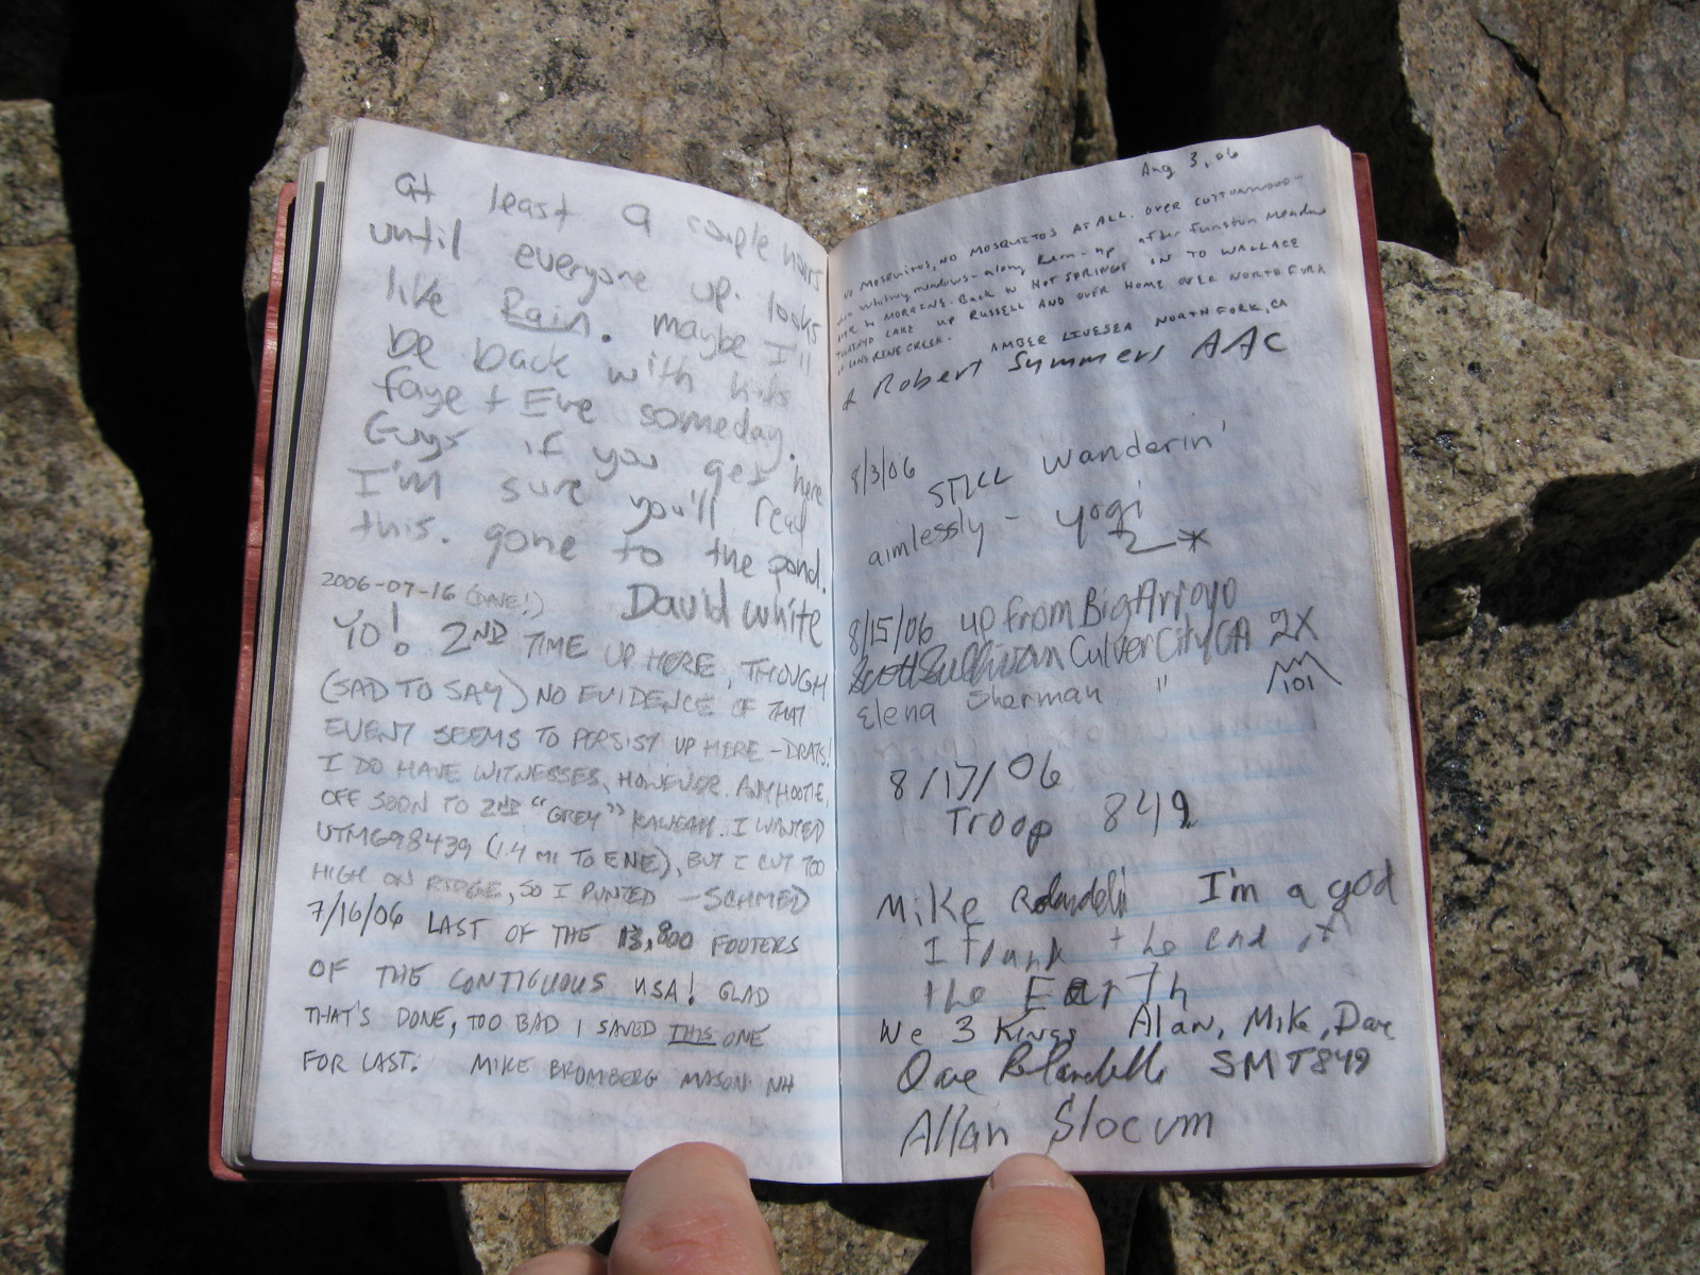 at least a couple hours
until everyone up. looks
like Rain. maybe I'll
be back with kids
faye + Eve someday.
Guys if you get here
I'm sure you'll read
this. gone to the pond.
David White
2006-07-16 (DAVE!)
YO! 2ND TIME UP HERE, THOUGH
(SAD TO SAY) NO EVIDENCE OF THAT
EVENT SEEMS TO PERSIST UP HERE - DRATS!
I DO HAVE WITNESSES, HOWEVER. ANYHOOTIE,
OFF SOON TO 2ND "GREY" KAWEAH. I WANTED
UTM698439 (1.4 MI TO ENE), BUT I CUT TOO
HIGH ON RIDGE, SO I PUNTED - SCHMED
7/16/06 LAST OF THE 13,800 FOOTERS
OF THE CONTIGUOUS USA! GLAD
THAT'S DONE, TOO BAD I SAVED THIS ONE
FOR LAST. MIKE BROMBERG MASON NH
Aug 3, 06
NO MOSQUITOS, NO MOSQUITOS AT ALL. OVER COTTONWOOD -
whitney meadows - along Kern - up after Funston Meadow
MORAINE. Back to HOT SPRINGS IN TO WALLACE
LAKE UP RUSSELL AND OVER HOME OVER NORTH FORK
CREEK. AMBER LIVESEA NORTH FORK, CA
& Robert Symmers AAC
8/3/06
STILL Wanderin'
aimlessly - yogi
8/15/06 up from Big Arroyo
Scott Sullivan Culver City CA 2X
Elena Sharman " 101
8/17/06
Troop 849
Mike I'm a god
I Found the end of
the EarTh
We 3 Kings Alan, Mike, Dave
Dave SMT849
Allan Slocum